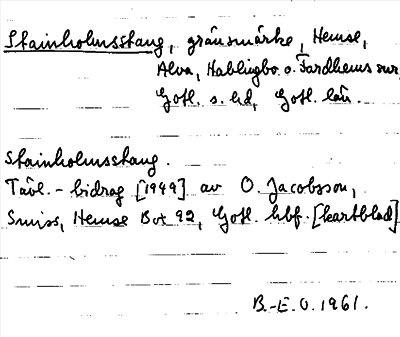 Stainholmsstang, gränsmärke, Hemse,
Alva, Hablingbo o. Fardhems snr,
Gotl. s. hd, Gotl. län.
Stainholmsstang.
Tävl.-bidrag [1949] av O. Jacobsson,
Smiss, Hemse Bot 92, Gotl. hbf. [kartblad]
B.-E. O. 1961.